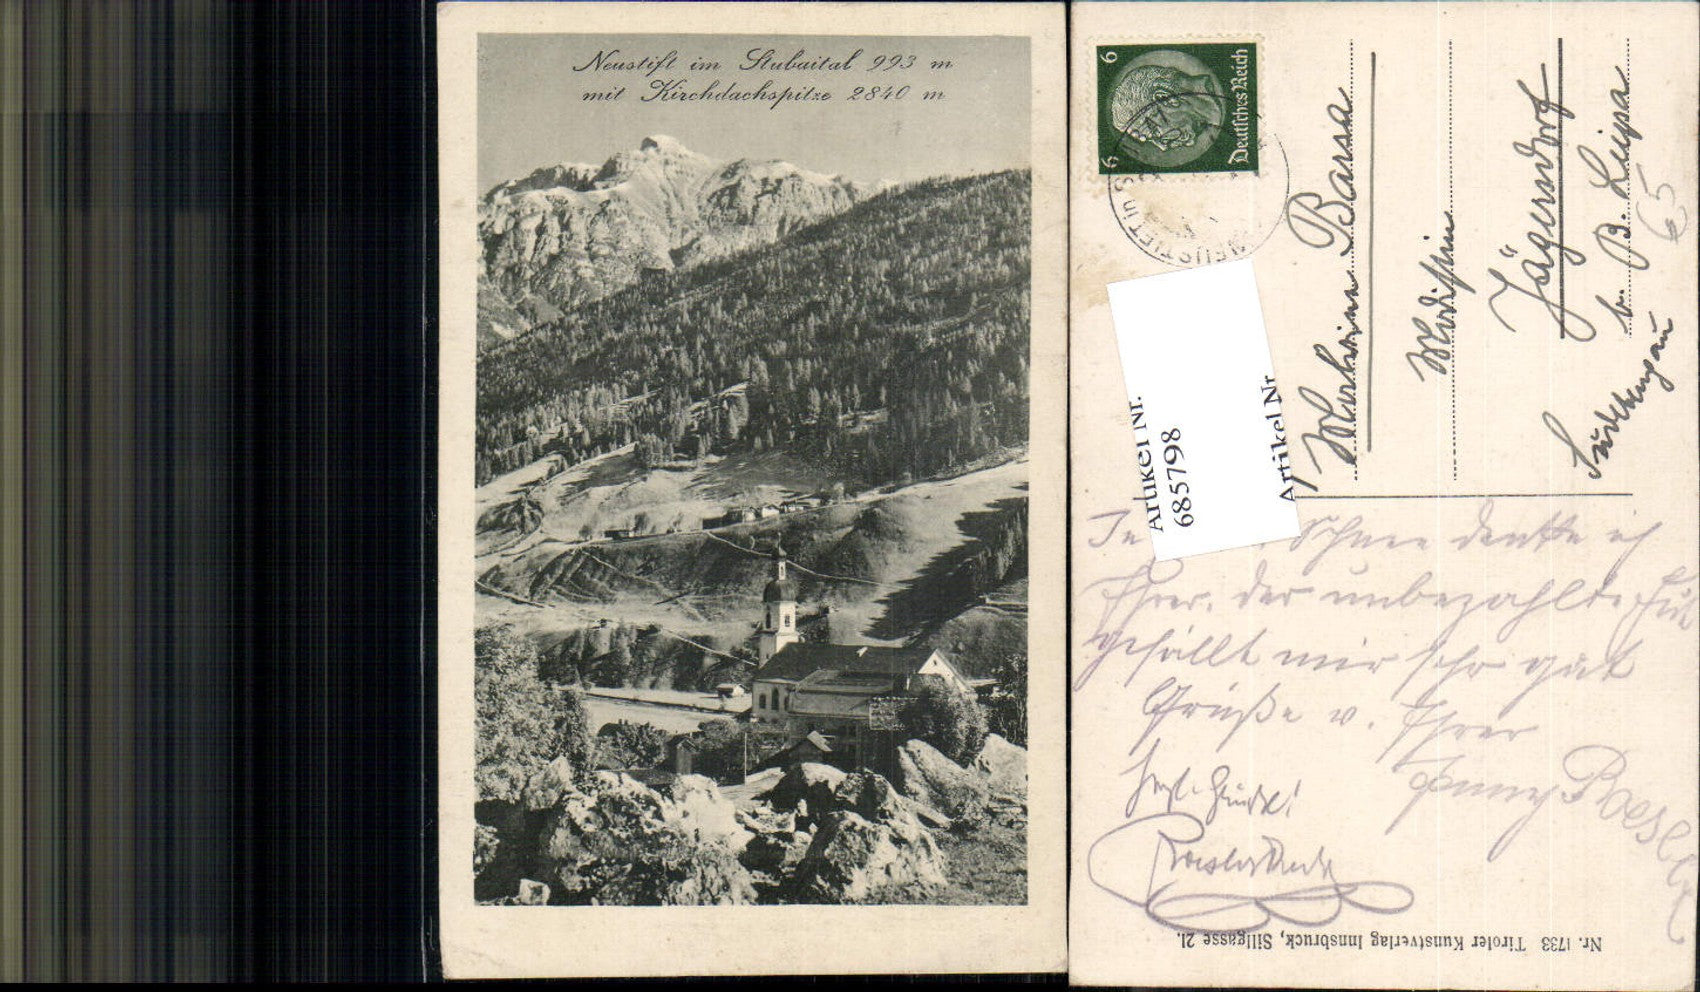 Neustift im Stubaital 993 m
mit Kirchdachspitze 2840 m
6 6
Deutsches Reich
NEUSTIFT in S
Artikel Nr.
685798
Artikel Nr
Barsa
Modistin
Jägersdorf
b. B. Leipa
Sudetengau
65
Schnee denke ich
Ihrer, der unbezahlte
gefällt mir sehr gut
Grüße v. Ihrer
Roesler
Nr. 1733 Tiroler Kunstverlag Innsbruck, Sillgasse 21.